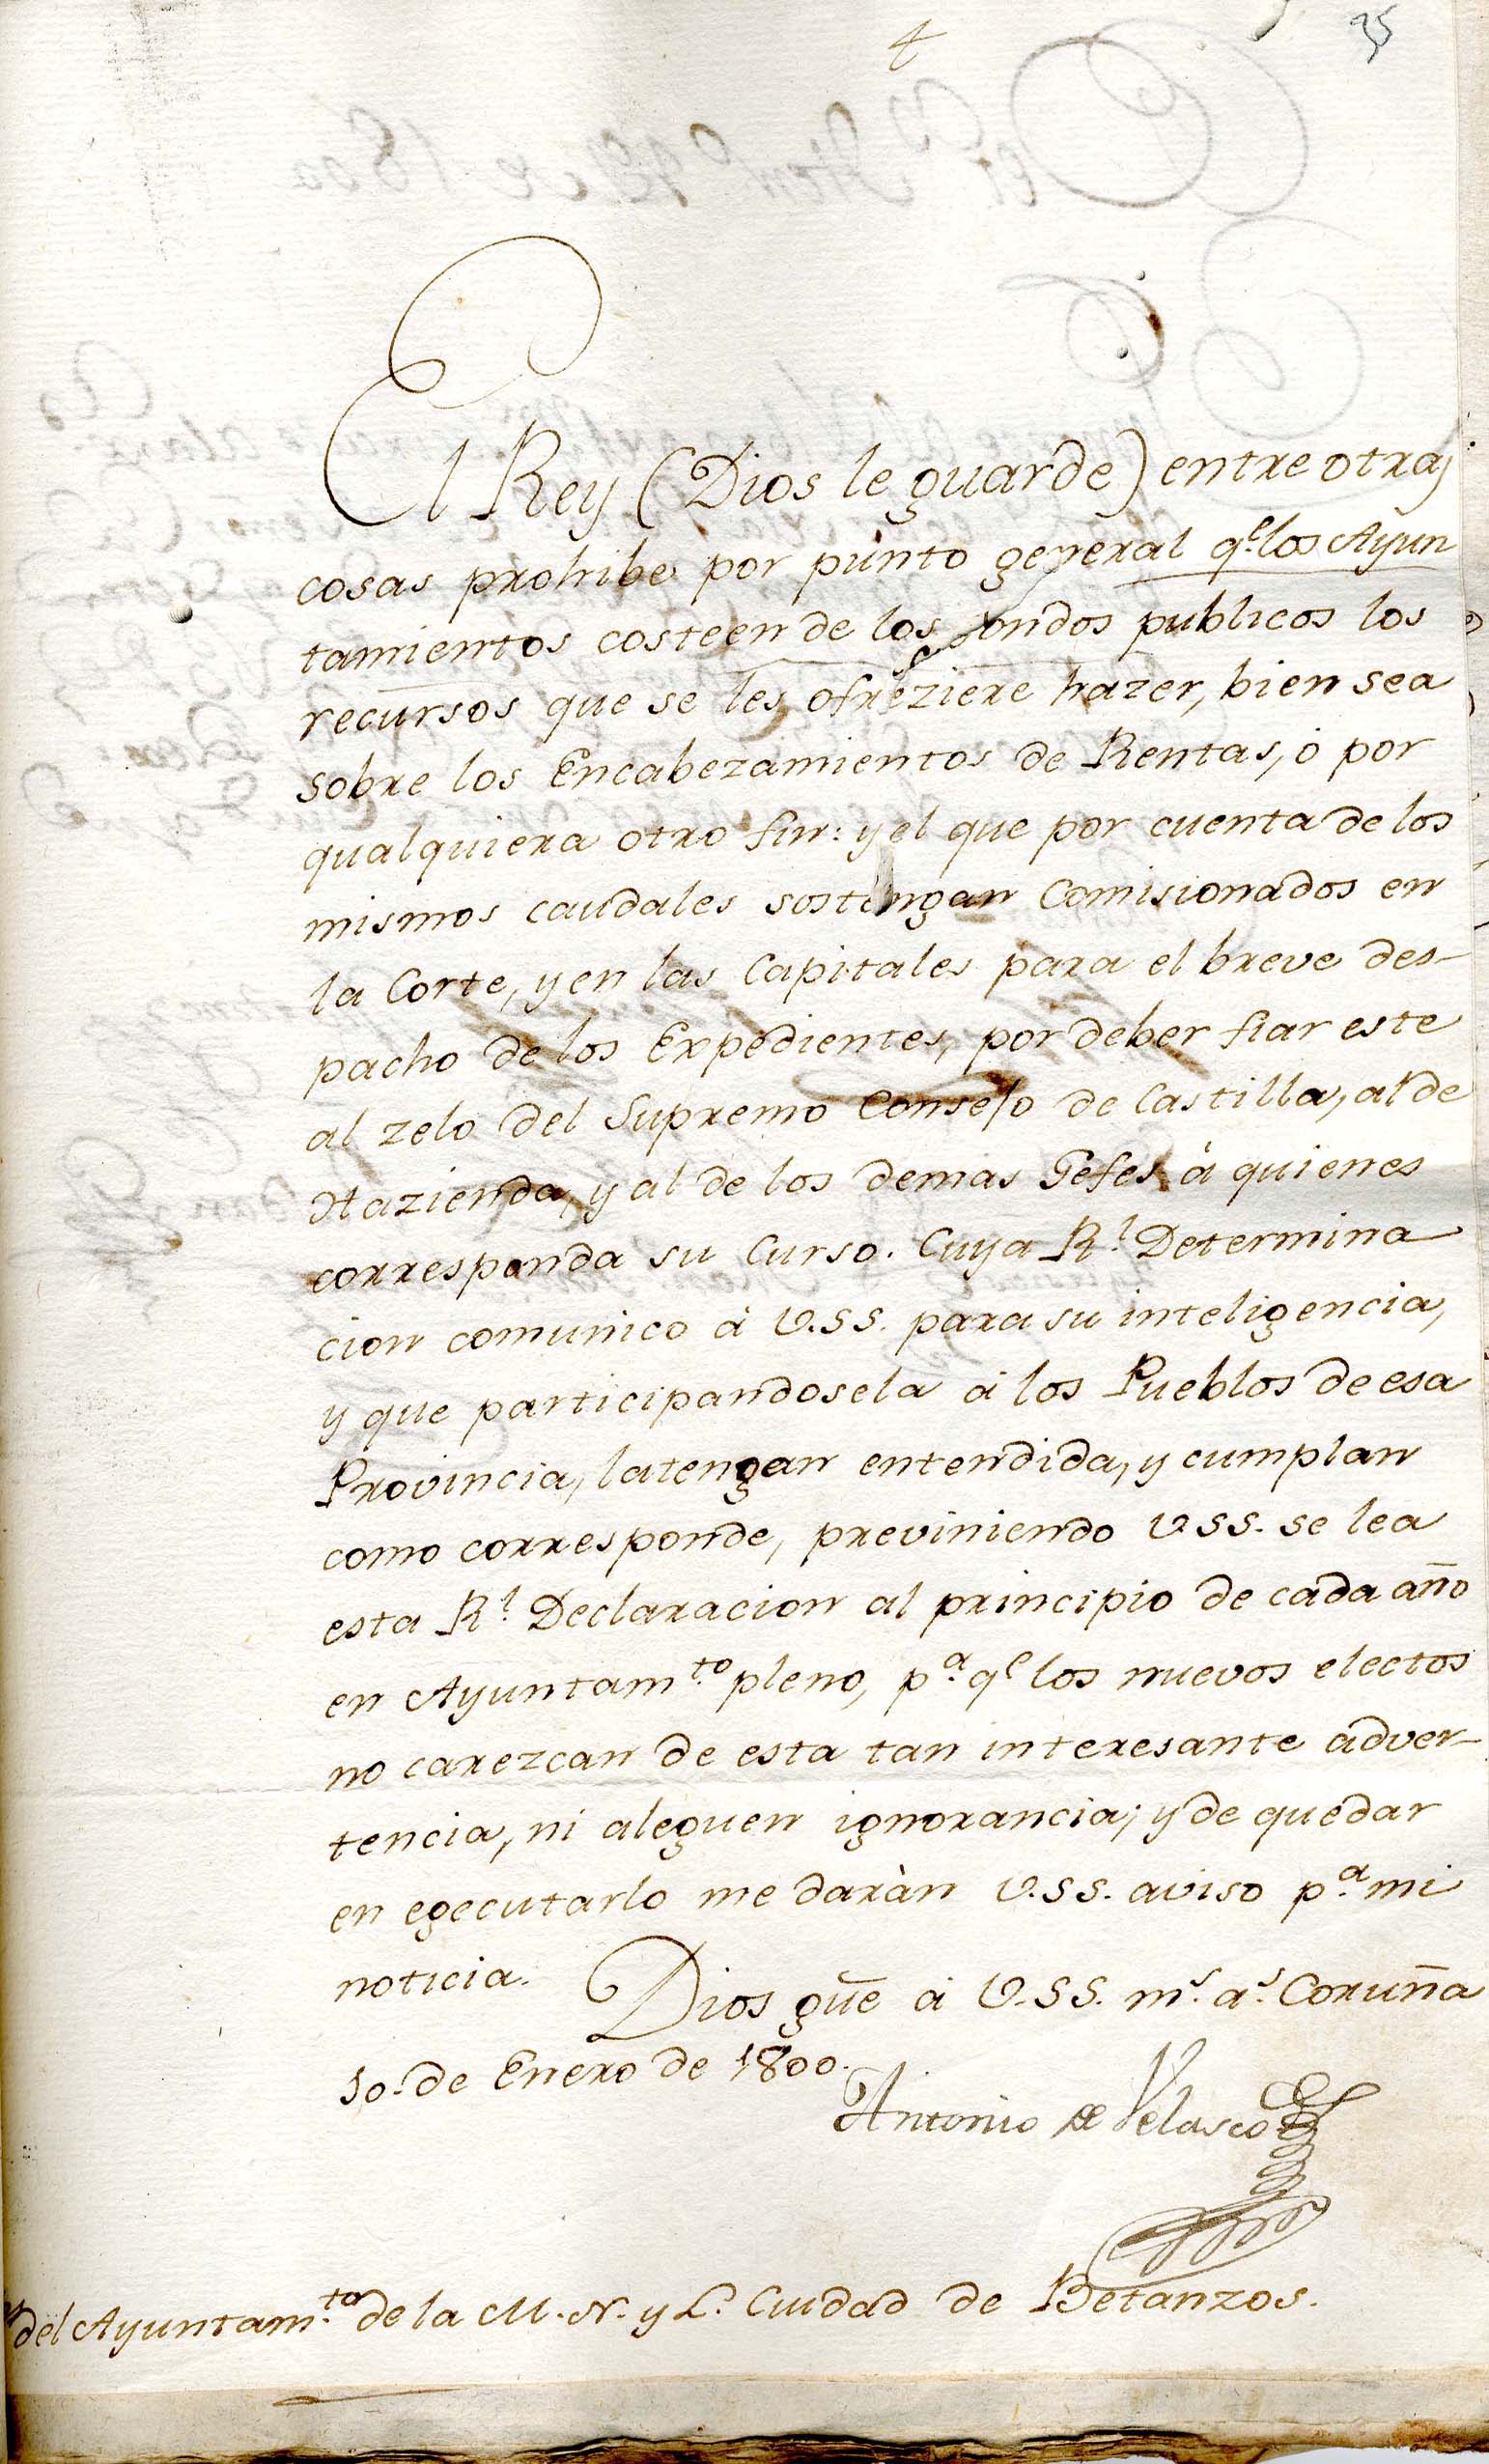 35
El Rey (Dios le guarde) entre otras
cosas prohibe por punto general q.e los Ayun
tamientos costeen de los fondos publicos los
recursos que se les ofreziere hazer, bien sea
sobre los Encabezamientos de Rentas, ò por
qualquiera otro fin: y el que por cuenta de los
mismos caudales sostengan Comisionados en
la Corte, y en las Capitales para el breve des-
pacho de los Expedientes, por deber fiar este
al zelo del Supremo Consejo de Castilla, al de
Hazienda, y al de los demas Gefes à quienes
corresponda su Curso. Cuya R.l Determina
cion comunico à V.SS. para su inteligencia,
y que participandosela à los Pueblos de esa
Provincia, la tengan entendida, y cumplan
como corresponde, previniendo V.SS. se lea
esta R.l Declaracion al principio de cada año
en Ayuntam.to pleno, p.a q.e los nuevos electos
no carezcan de esta tan interesante adver-
tencia, ni aleguen ignorancia; y de quedar
en egecutarlo me daràn V.SS. aviso p.a mi
noticia. Dios gūe à V.SS. m.s a.s Coruña
10. de Enero de 1800.
Antonio de Velasco
del Ayuntam.to de la M. N. y L. Ciudad de Betanzos.